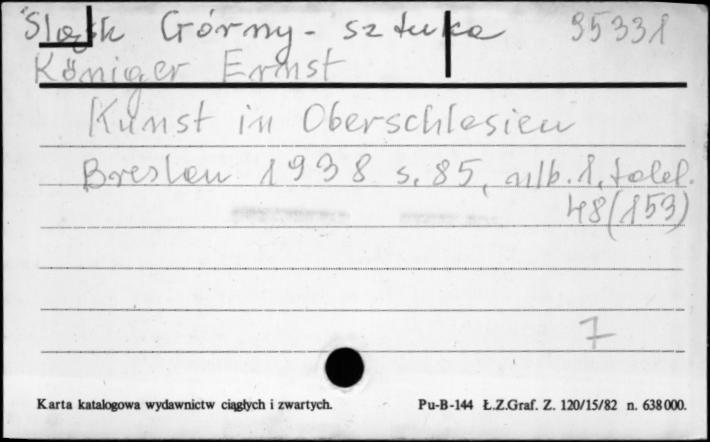 Śląsk Górny - sztuka 35331
Königer Ernst
Kunst in Oberschlesien
Breslau 1938 s. 85, nlb. 1, tabl.
48 (153)
7
Karta katalogowa wydawnictw ciągłych i zwartych. Pu-B-144 Ł.Z.Graf. Z. 120/15/82 n. 638 000.